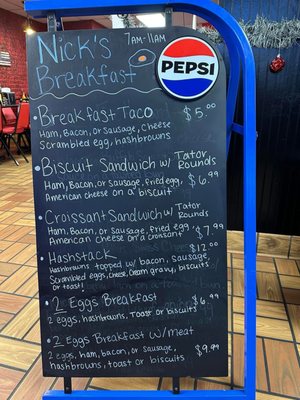 Nick's
7AM-11AM
Breakfast
PEPSI
• Breakfast Taco $5.00
Ham, Bacon, or Sausage, Cheese
Scrambled egg, hashbrowns
• Biscuit Sandwich w/ Tator Rounds
Ham, Bacon, or Sausage, fried egg, $6.99
American cheese on a biscuit
• Croissant Sandwich w/ Tator Rounds
Ham, Bacon, or Sausage, fried egg, $7.99
American cheese on a croisant
• Hashstack $12.00
Hashbrowns topped w/ bacon, sausage,
Scrambled eggs, cheese, cream gravy, biscuits
or toast!
• 2 Eggs Breakfast $6.99
2 eggs, hashbrowns, Toast or biscuits
• 2 Eggs Breakfast w/ meat
2 eggs, ham, bacon, or sausage, $9.99
Hashbrowns, toast or biscuits